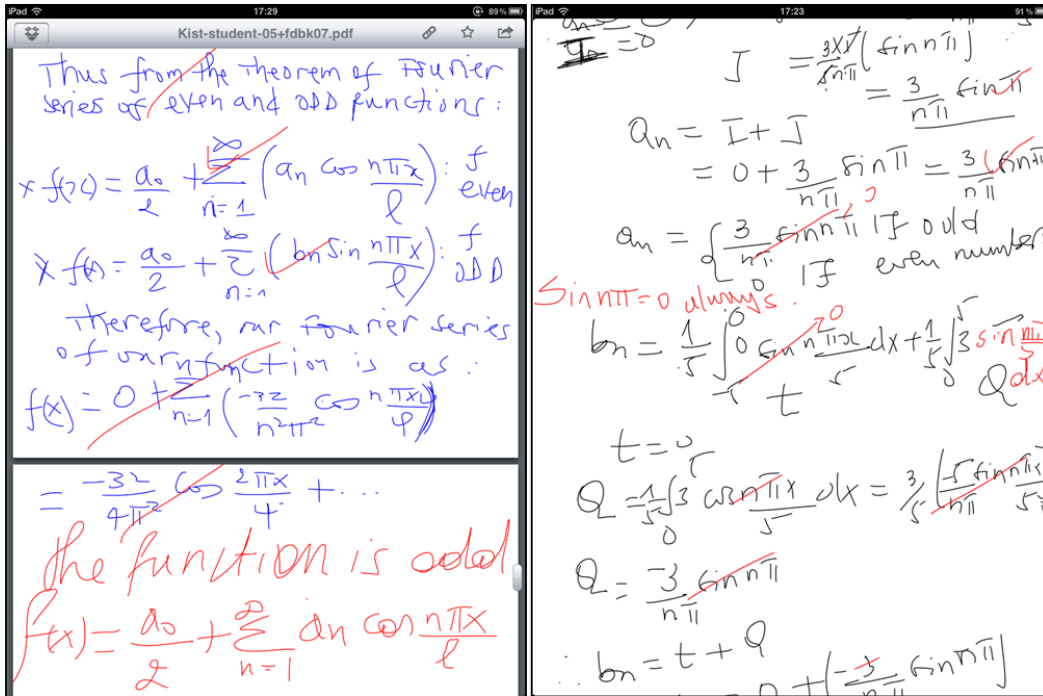 iPad 17:29 89%
Kist-student-05+fdbk07.pdf
Thus from the Theorem of Fourier
series of even and ODD functions:
x f(x) = a₀/2 + ∞ Σ n=1 (an cos nπx/l) : f even
x f(x) = a₀/2 + ∞ Σ n=1 (bn sin nπx/l) : f ODD
Therefore, our Fourier series
of our function is as:
f(x) = 0 + Σ n=1 (-32/n²π² cos nπx/4)
= -32/4π² cos 2πx/4 + ...
the function is odd
f(x) = a₀/2 + ∞ Σ n=1 an cos nπx/l
iPad 17:23 91%
= 0
J = (sin nπ)
= 3/nπ sin π
an = I + J
= 0 + 3/nπ sin nπ = 3/nπ sin nπ
an = { 3/nπ sin nπ If ould 0
0 If even number
Sin nπ = 0 always.
bn = 1/5 ∫ 0 sin nπx/5 dx + 1/5 ∫ 3 sin nπ/5 dx
t Q
t = 0
Q = 1/5 ∫ 3 cos nπx/5 dx = 3/5 (-5/nπ sin nπx/5
Q = -3/nπ sin nπ
∴ bn = t + Q
0 + (-3/nπ sin nπ)